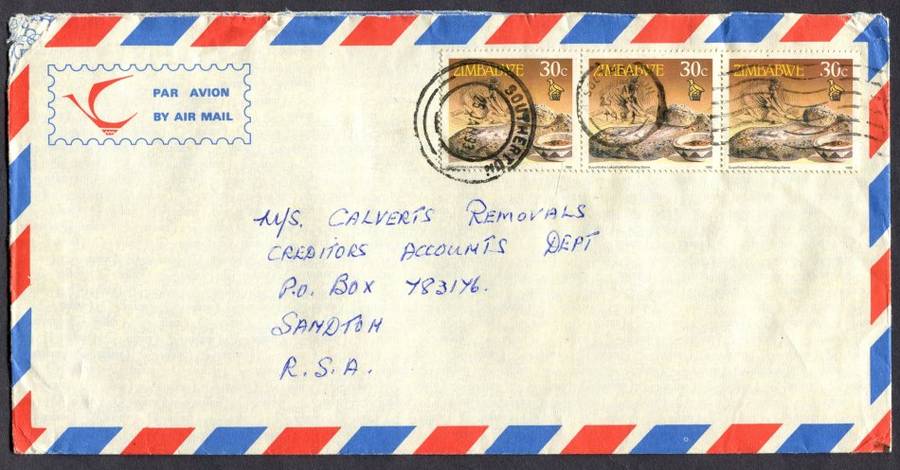 PAR AVION
BY AIR MAIL
ZIMBABWE 30c
ZIMBABWE 30c
ZIMBABWE 30c
SOUTHERTON
M/S. CALVERTS REMOVALS
CREDITORS ACCOUNTS DEPT
P.O. BOX 783146.
SANDTON
R.S.A.